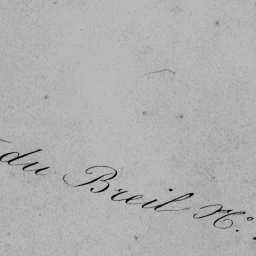 du Breil N.º